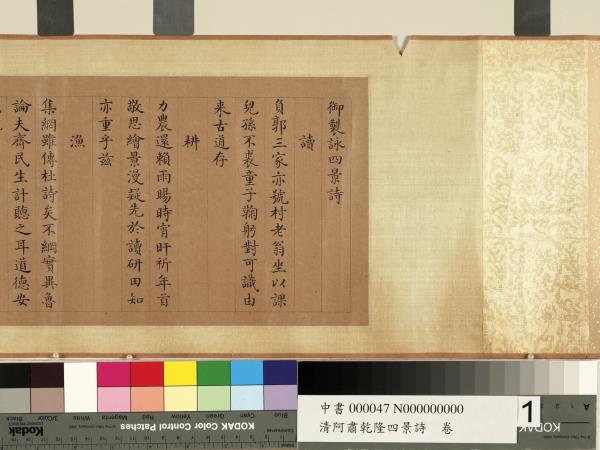 御製詠四景詩
讀
負郭三家亦號村老翁坐以課
兒孫不裘童子鞠躬對可識由
来古道存
耕
力農還賴雨暘時宵旰祈年首
敬思繪景漫疑先於讀研田知
亦重乎兹
漁
集網雖傳杜詩矣不綱實異魯
論夫齋民生計聽之耳道德安
中書 000047 N000000000
清阿肅乾隆四景詩 卷
1
KODAK Color Control Patches
Blue
Cyan
Green
Yellow
Red
Magenta
White
3/Color
Black
A